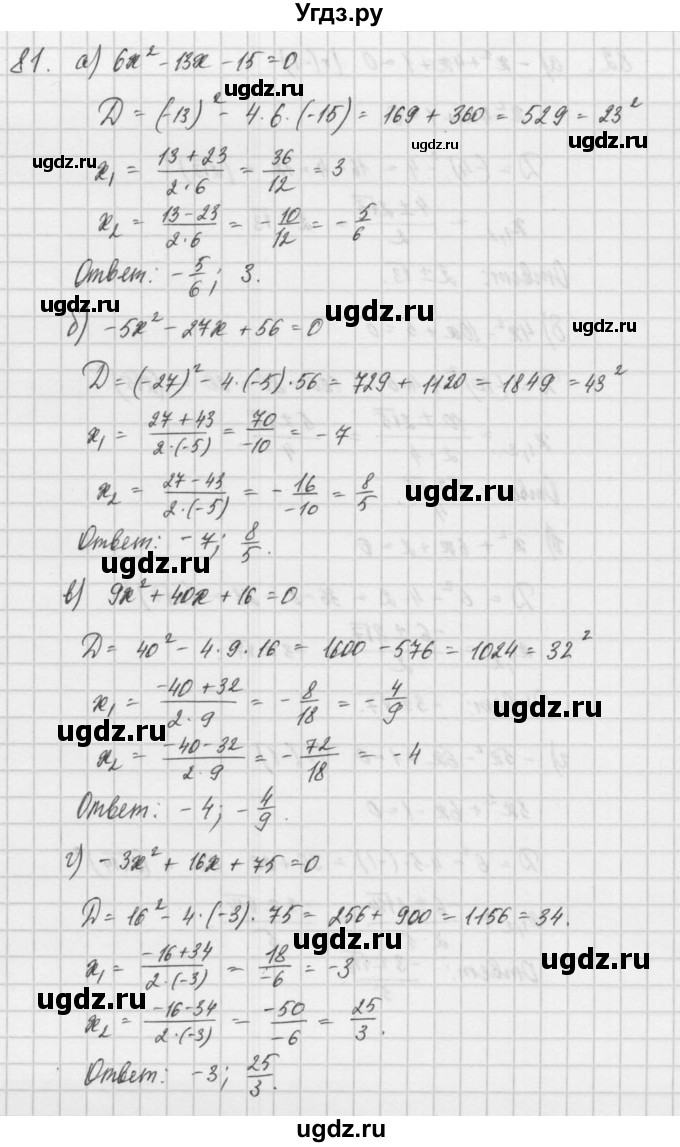 Угдз.ру
81. а) 6x² - 13x - 15 = 0
ugdz.ru
D = (-13)² - 4·6·(-15) = 169 + 360 = 529 = 23²
ugdz.ru ugdz.ru
x₁ = (13 + 23)/(2·6) = 36/12 = 3
ugdz.ru
x₂ = (13 - 23)/(2·6) = -10/12 = -5/6
ugdz.ru
Ответ: -5/6; 3.
ugdz.ru
б) -5x² - 27x + 56 = 0
ugdz.ru
D = (-27)² - 4·(-5)·56 = 729 + 1120 = 1849 = 43²
x₁ = (27 + 43)/(2·(-5)) = 70/-10 = -7
ugdz.ru
x₂ = (27 - 43)/(2·(-5)) = -16/-10 = 8/5
ugdz.ru
Ответ: -7; 8/5.
ugdz.ru
в) 9x² + 40x + 16 = 0
D = 40² - 4·9·16 = 1600 - 576 = 1024 = 32²
x₁ = (-40 + 32)/(2·9) = -8/18 = -4/9
ugdz.ru
ugdz.ru
x₂ = (-40 - 32)/(2·9) = -72/18 = -4
Ответ: -4; -4/9.
ugdz.ru
г) -3x² + 16x + 75 = 0
D = 16² - 4·(-3)·75 = 256 + 900 = 1156 = 34.
ugdz.ru
x₁ = (-16 + 34)/(2·(-3)) = 18/-6 = -3
ugdz.ru
x₂ = (-16 - 34)/(2·(-3)) = -50/-6 = 25/3.
ugdz.ru
Ответ: -3; 25/3.
ugdz.ru
ugdz.ru